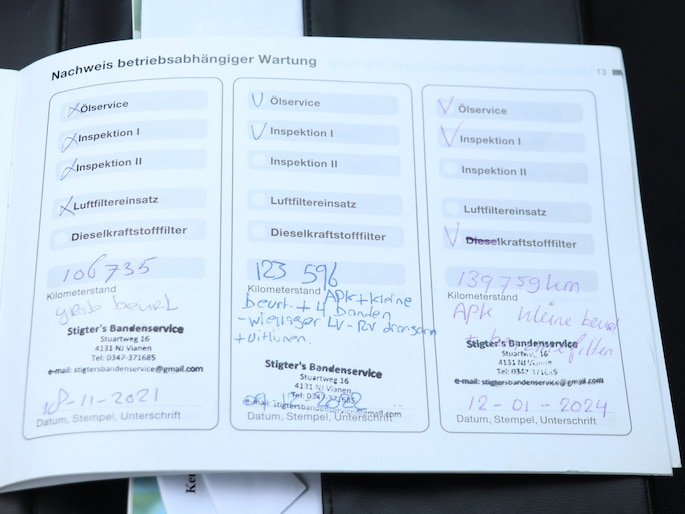 Nachweis betriebsabhängiger Wartung
13
Ölservice
Inspektion I
Inspektion II
Luftfiltereinsatz
Dieselkraftstofffilter
106735
Kilometerstand
beurt
Stigter's Bandenservice
Stuartweg 16
4131 NJ Vianen
Tel: 0347-371685
e-mail: stigtersbandenservice@gmail.com
18-11-2021
Datum, Stempel, Unterschrift
Ölservice
Inspektion I
Inspektion II
Luftfiltereinsatz
Dieselkraftstofffilter
123 596
Kilometerstand
APK + kleine
beurt + 4 banden
- wiellager LV - RV
+ uitlijnen.
Stigter's Bandenservice
Stuartweg 16
4131 NJ Vianen
Tel: 0347-371685
e-mail: stigtersbandenservice@gmail.com
Datum, Stempel, Unterschrift
Ölservice
Inspektion I
Inspektion II
Luftfiltereinsatz
Dieselkraftstofffilter
139759 km
Kilometerstand
APK kleine beurt
Stigter's Bandenservice
Stuartweg 16
4131 NJ Vianen
Tel: 0347-371685
e-mail: stigtersbandenservice@gmail.com
12-01-2024
Datum, Stempel, Unterschrift